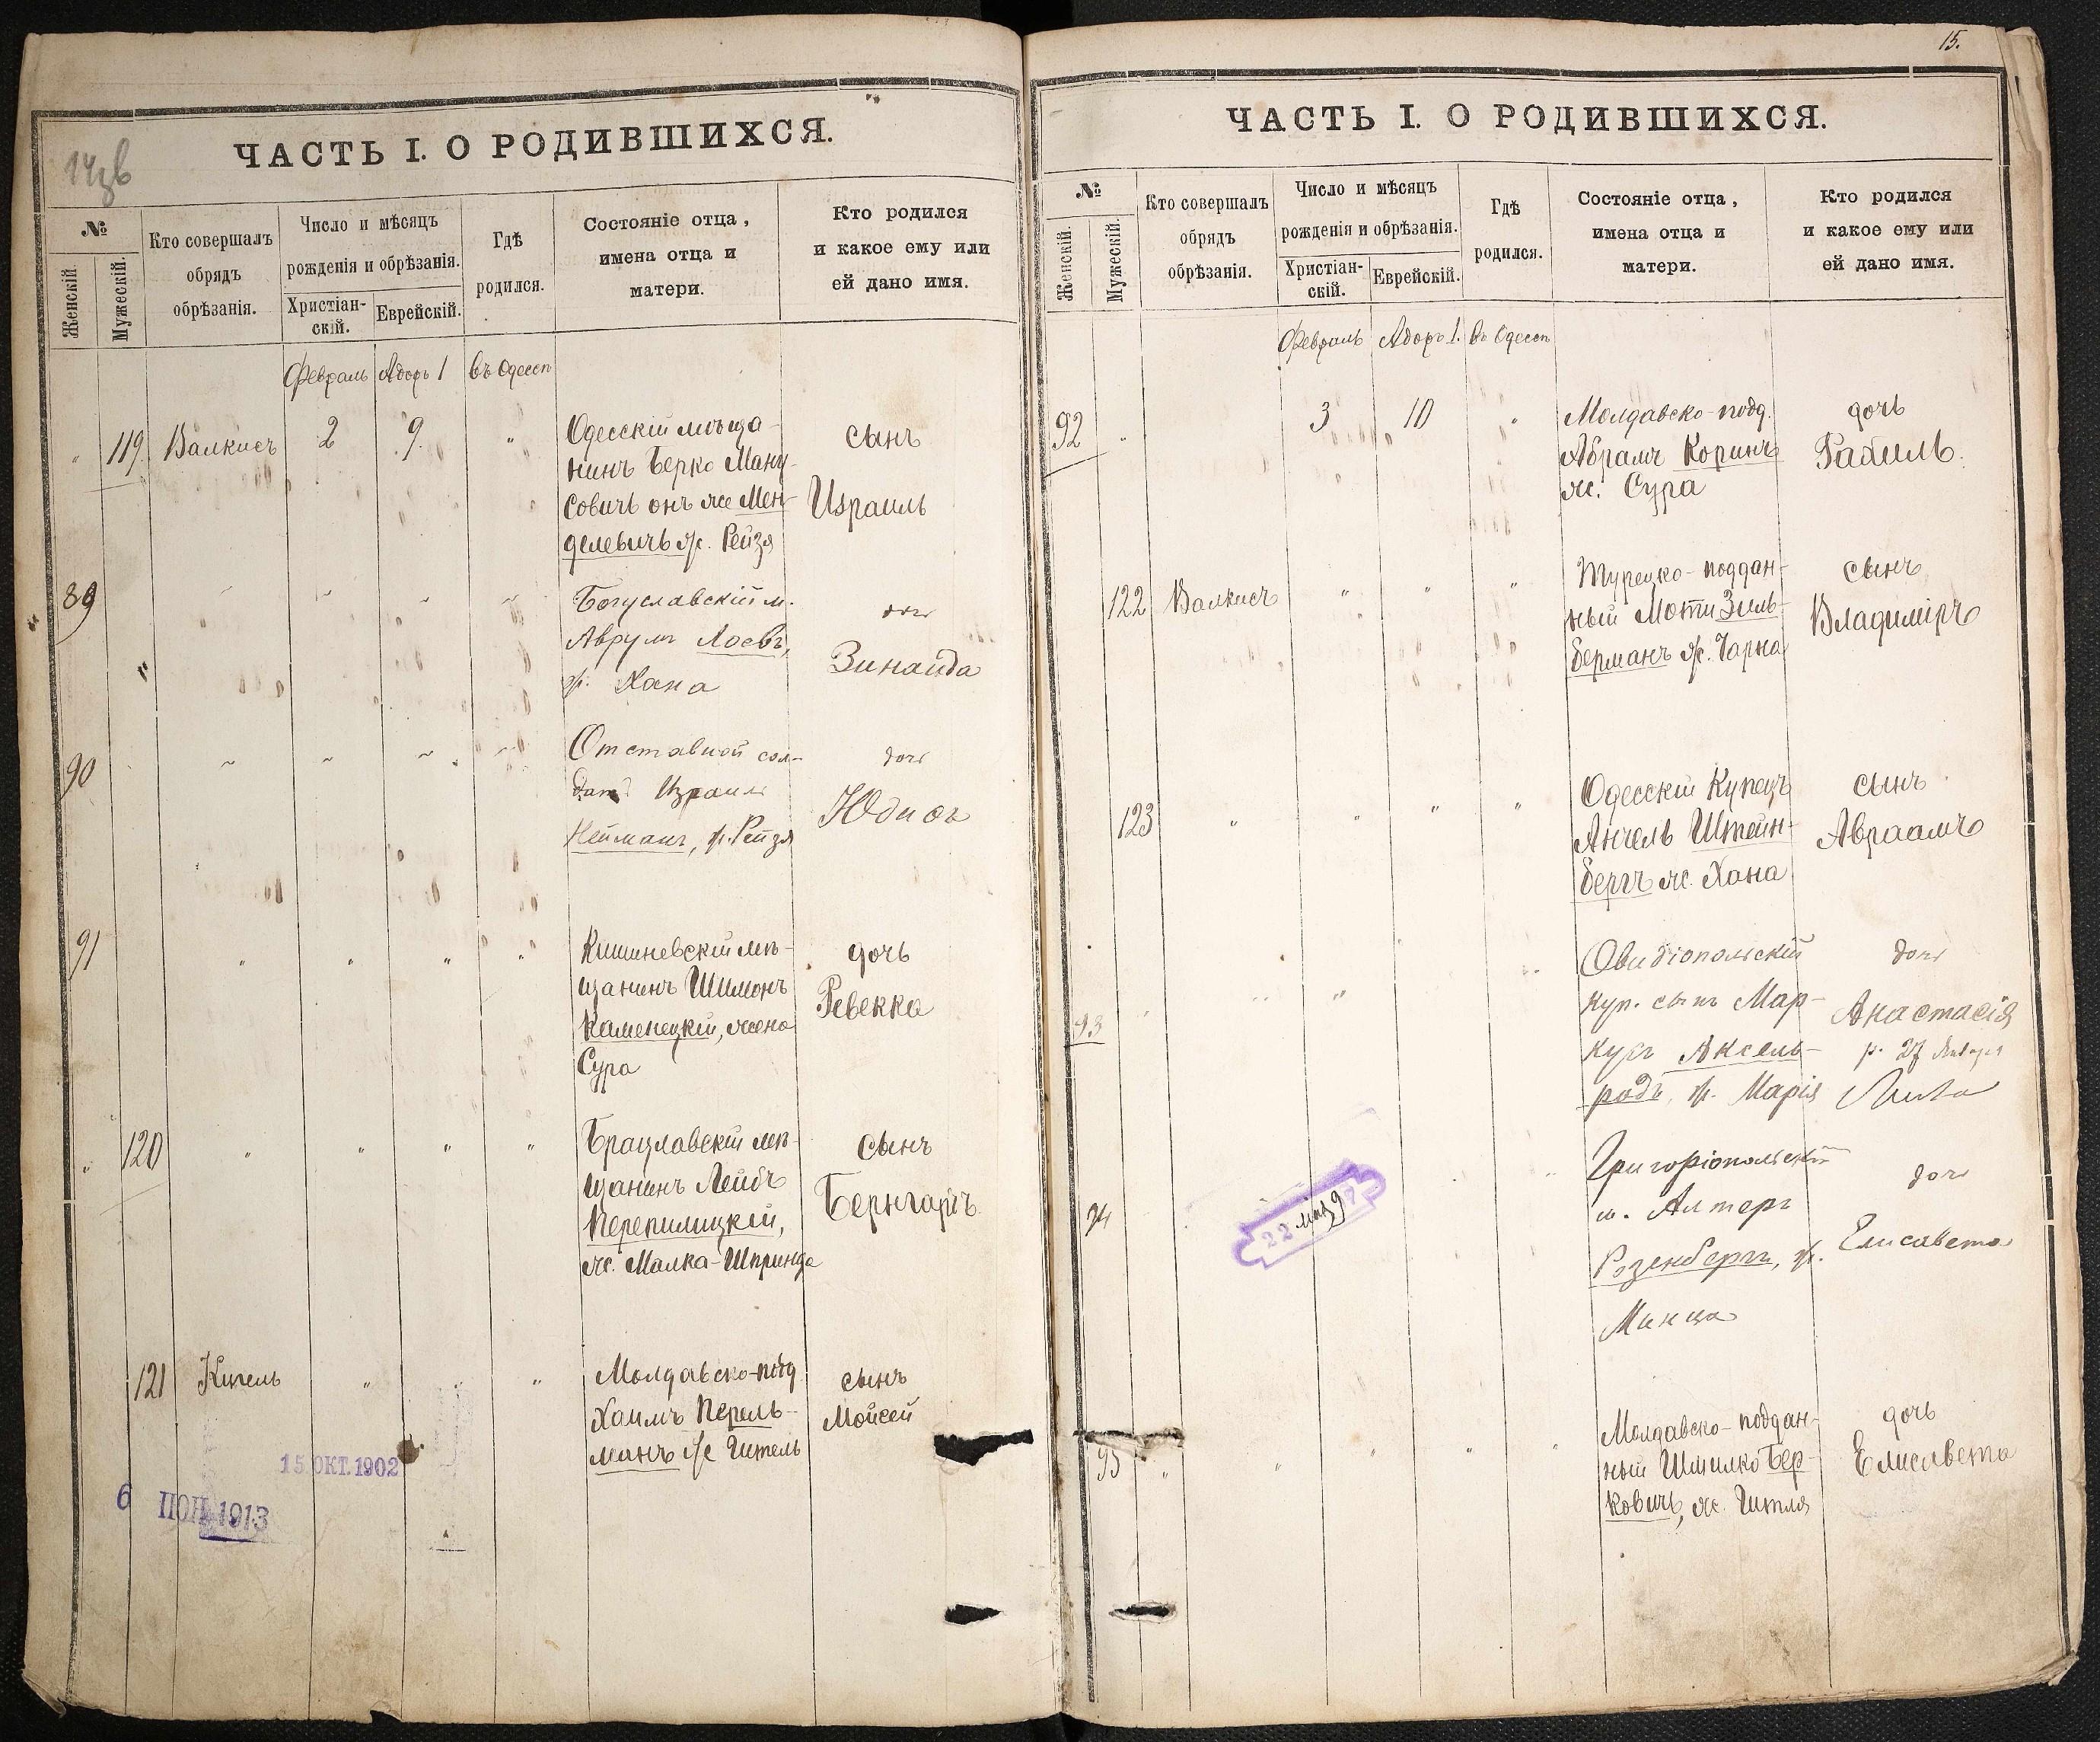 14зв
ЧАСТЬ I. О РОДИВШИХСЯ.
№
Женскій.
Мужескій.
Кто совершалъ
обрядъ
обрѣзанія.
Число и мѣсяцъ
рожденія и обрѣзанія.
Христіан-
скій.
Еврейскій.
Гдѣ
родился.
Состояніе отца,
имена отца и
матери.
Кто родился
и какое ему или
ей дано имя.
Февраль Адоръ 1 въ Одессѣ
" 119 Валкисъ 2 9. "
Одесскій мѣща-
нинъ БеркоМану-
совичъ онъ же Мен-
делевичъ ж. Рейзя
сынъ
Израиль
89
Богуславскій м.
Аврумъ Лоевъ,
ж. Хана
дочь
Зинаида
90
Отставной сол-
датъ Израиль
Нейманъ, ж. Рейзя
дочь
Юдиѳь
91 " " " "
Кишиневскій мѣ-
щанинъ Шимонъ
Каменецкій, жена
Сура
дочь
Ревекка
" 120 " " " "
Брацлавскій мѣ-
щанинъ Лейбъ
Перепилицкій,
ж. Малка-Шпринца
сынъ
Бернгардъ
121 Кигель " "
Молдавско-подд
Хаимъ Перель-
манъ ж Гитель
сынъ
Мойсей
15 ОКТ. 1902
6 1913
15.
ЧАСТЬ I. О РОДИВШИХСЯ.
№
Женскій.
Мужескій.
Кто совершалъ
обрядъ
обрѣзанія.
Число и мѣсяцъ
рожденія и обрѣзанія.
Христіан-
скій.
Еврейскій.
Гдѣ
родился.
Состояніе отца,
имена отца и
матери.
Кто родился
и какое ему или
ей дано имя.
Февраль Адоръ 1. въ Одессѣ
92 " 3 10 "
Молдавско-подд.
Абрамъ Коринъ
ж. Сура
дочь
Рахиль.
122 Валкисъ " " "
Турецко-поддан-
ный Моти Зиль-
берманъ ж. Чарна
сынъ
Владиміръ
123 " " " "
Одесскій Купецъ
Анчель Штейн-
бергъ ж. Хана
сынъ
Авраамъ
93
Овидіопольскій
куп. сынъ Мар-
кусъ Аксель-
родъ, ж. Марія
дочь
Анастасія
р. 27 Января
94
Григоріопольскій
м. Алтеръ
Розенбергъ, ж.
Минца
дочь
Елисавета
22
95 " " " " "
Молдавско-поддан-
ный Шмилко Бер-
ковичъ, ж. Гитля
дочь
Елисавета